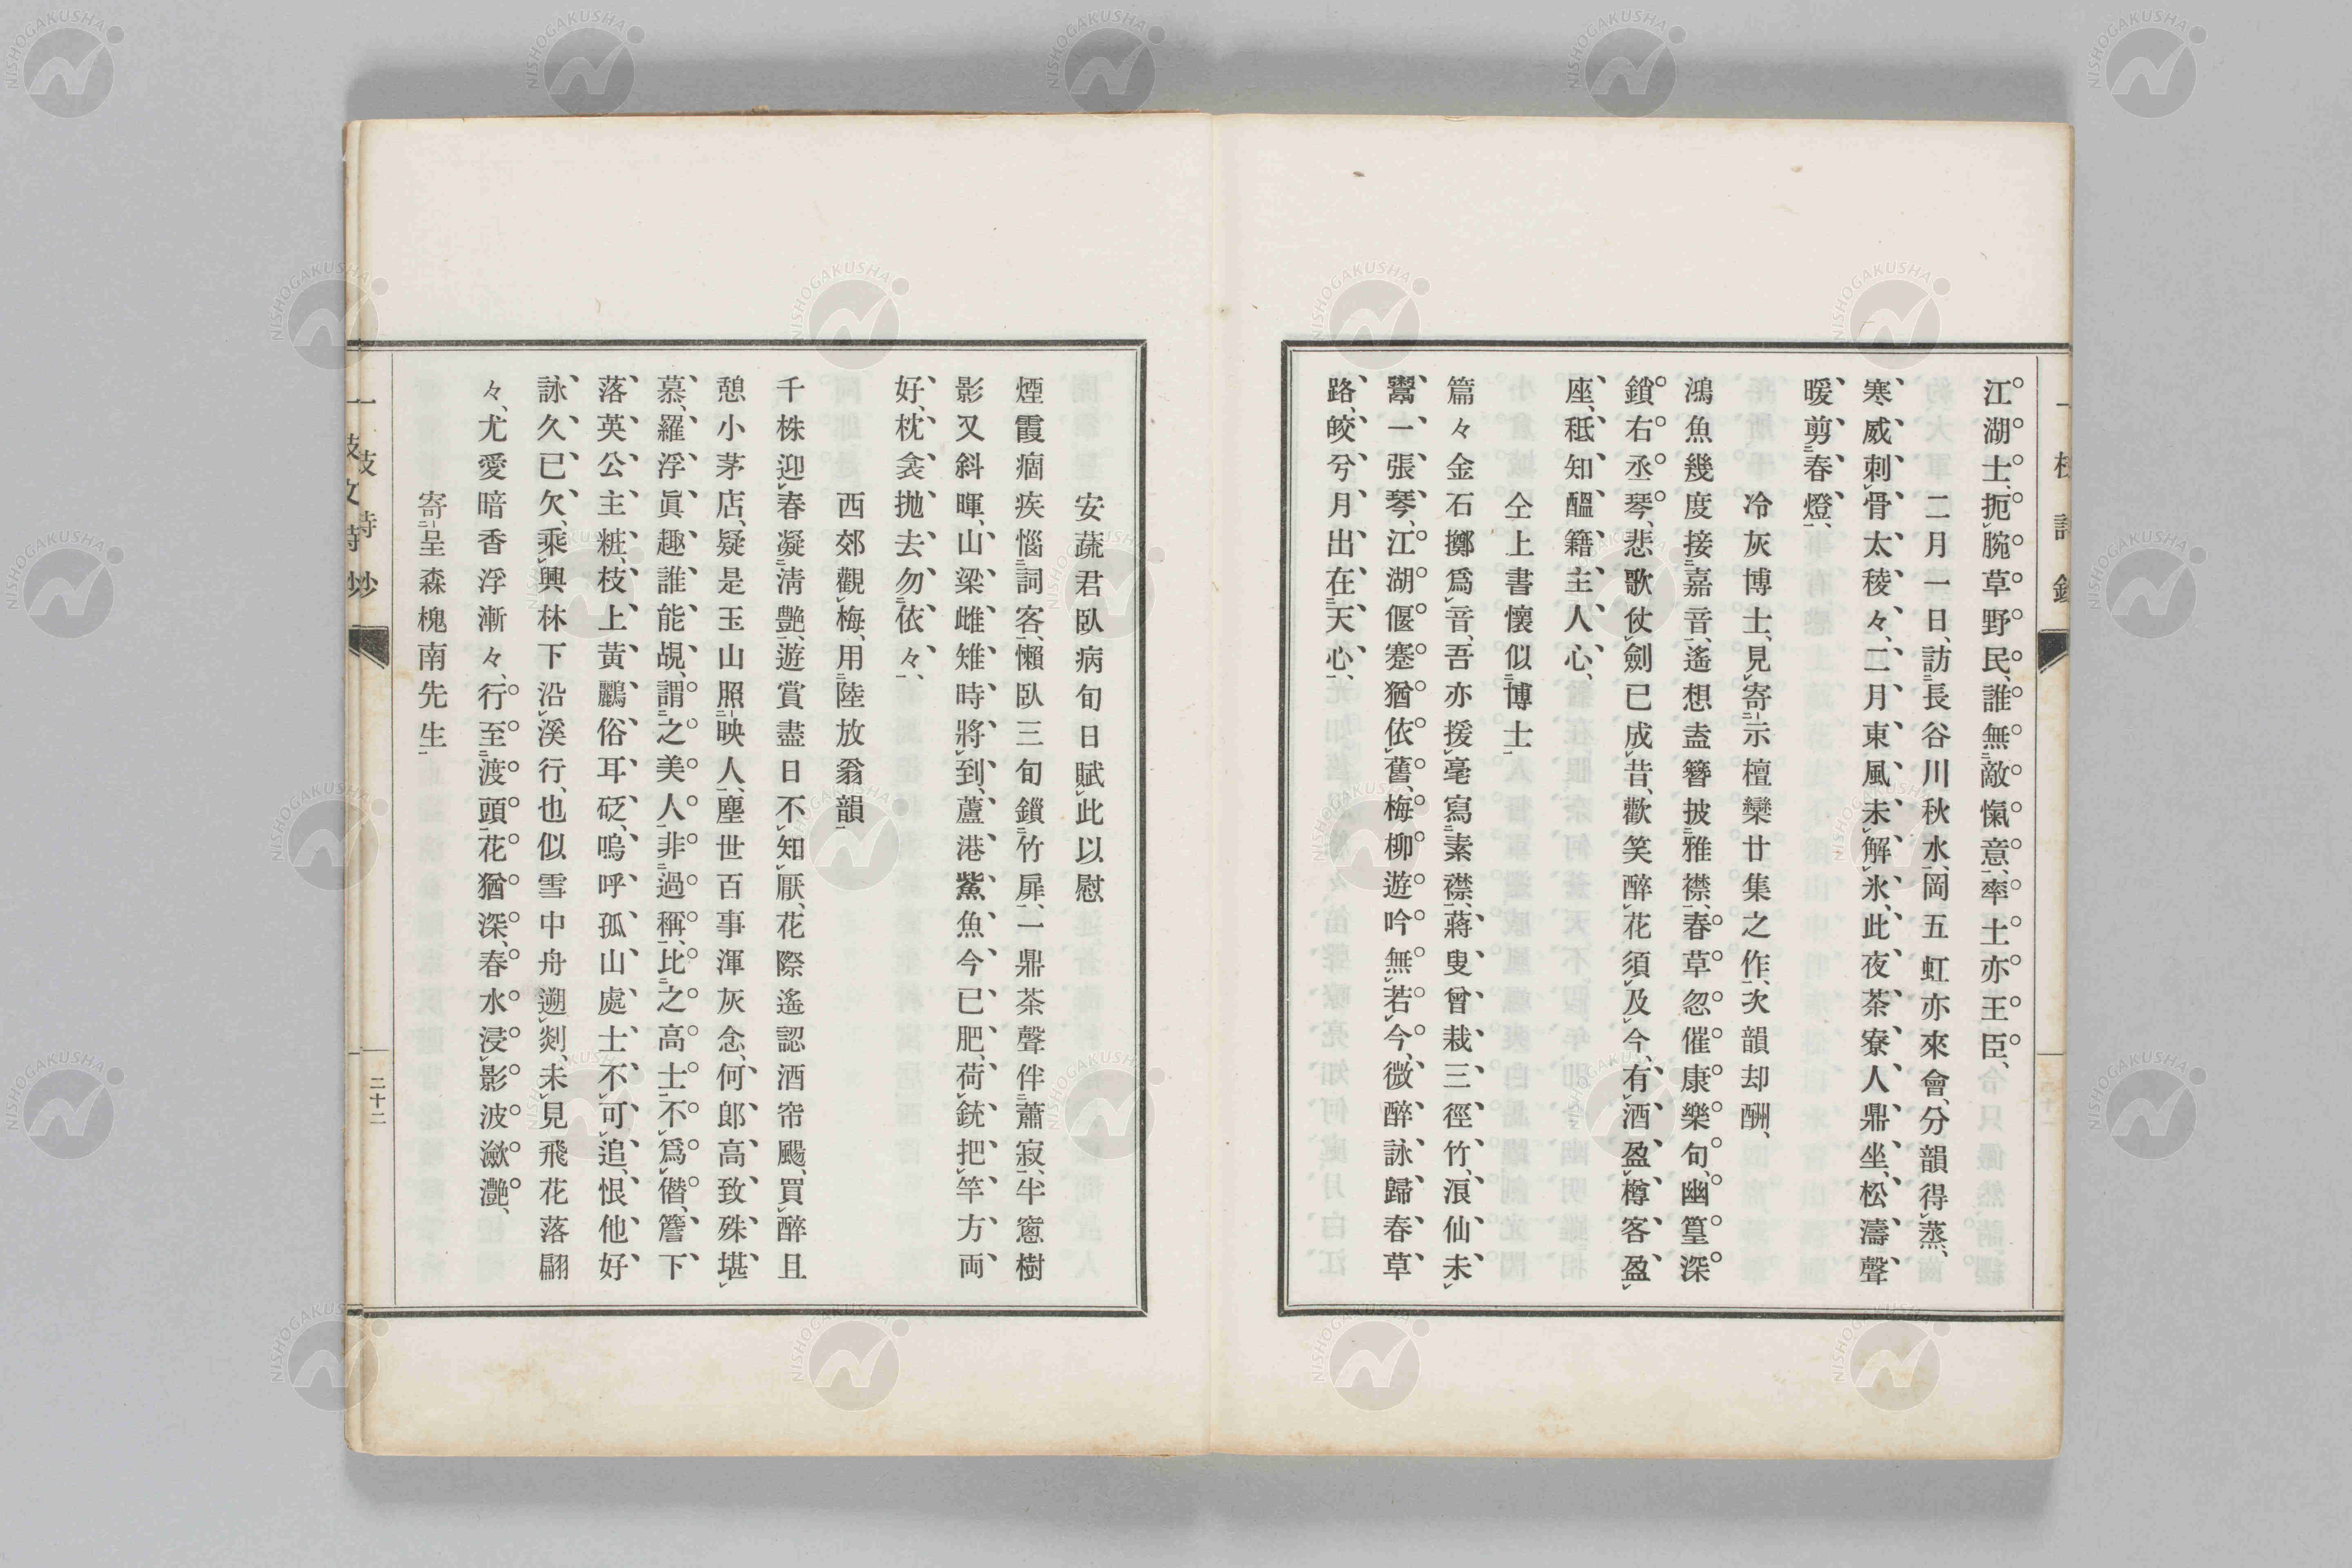 江湖士、扼腕草野民、誰無敵愾意、率土亦王臣、
二月一日、訪長谷川秋水、岡五虹亦來會、分韻得蒸、
寒威刺骨太稜々、二月東風未解氷、此夜茶寮人鼎坐、松濤聲
暖剪春燈、
冷灰博士、見寄示檀欒廿集之作、次韻却酬、
鴻魚幾度接嘉音、遙想盍簪披雅襟、春草忽催康樂句、幽篁深
鎖右丞琴、悲歌仗劍已成昔、歡笑醉花須及今、有酒盈樽客盈
座、秪知醞籍主人心、
仝上書懷似博士
篇々金石擲爲音、吾亦援毫寫素襟、蔣叟曾栽三徑竹、浪仙未
鬻一張琴、江湖偃蹇猶依舊、梅柳遊吟無若今、微醉詠歸春草
路、皎兮月出在天心、
安蔬君臥病旬日賦此以慰
煙霞痼疾惱詞客、懶臥三旬鎖竹扉、一鼎茶聲伴蕭寂、半窻樹
影又斜暉、山梁雌雉時將到、蘆港鱟魚今已肥、荷銃把竿方両
好、枕衾抛去勿依々、
西郊觀梅、用陸放翁韻
千株迎春凝淸艷、遊賞盡日不知厭、花際遙認酒帘颺、買醉且
憩小茅店、疑是玉山照映人、塵世百事渾灰念、何郎高致殊堪
慕、羅浮眞趣誰能覘、謂之美人非過稱、比之高士不爲僭、簷下
落英公主粧、枝上黃鸝俗耳砭、嗚呼孤山處士不可追、恨他好
詠久已欠、乘興林下沿溪行、也似雪中舟遡剡、未見飛花落翩
々、尤愛暗香浮漸々、行至渡頭花猶深、春水浸影波瀲灔、
寄呈森槐南先生
二十二
NISHOGAKUSHA